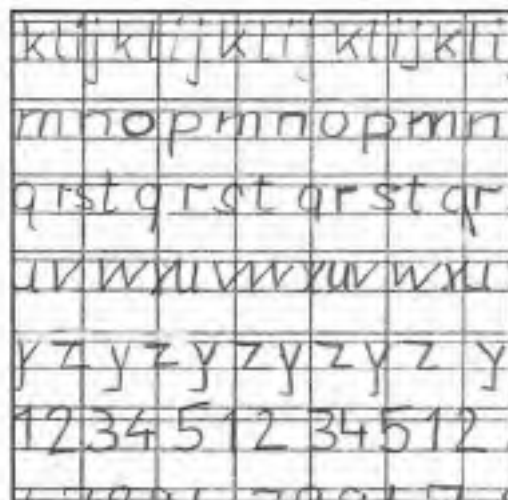 k l i j k l i j k l i j k l i j k l i
m n o p m n n o p m n
q r s t q r s t q r s t q r
u v w x u v w x u v w x u
y z y z y z y z y z y
1 2 3 4 5 1 2 3 4 5 1 2